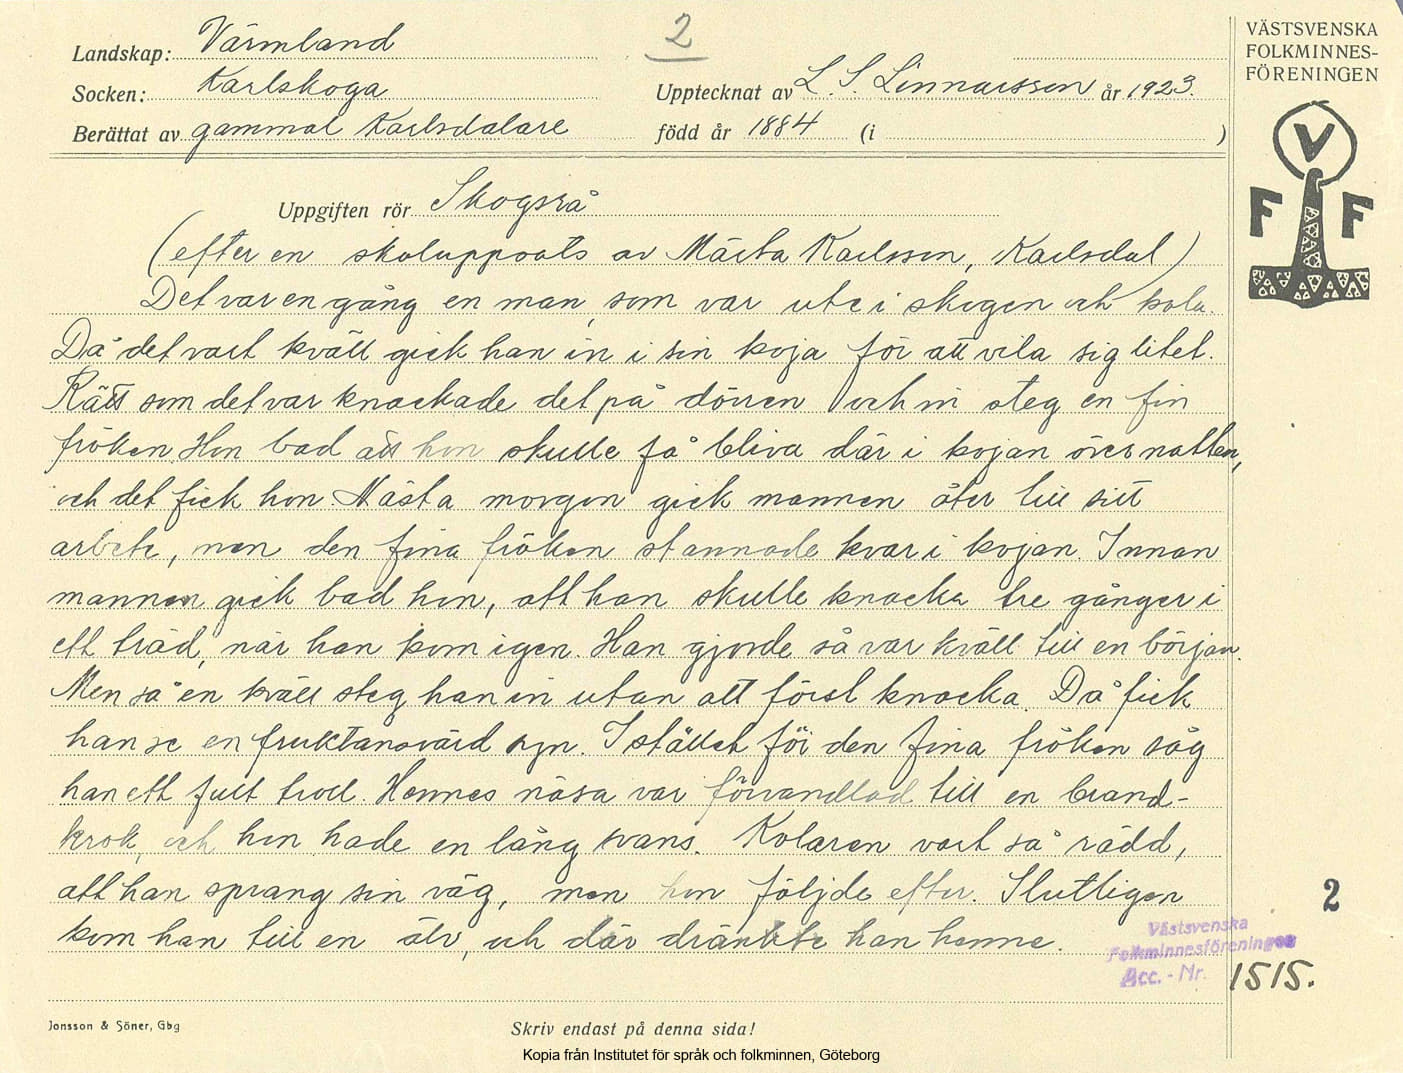 Landskap: Värmland
2
Socken: Karlskoga
Upptecknat av L. S. Linnarsson år 1923.
Berättat av gammal Karlsdalare
född år 1884 (i )
Uppgiften rör Skogsrå
(efter en skoluppsats av Märta Karlsson, Karlsdal)
Det var en gång en man, som var ute i skogen och kola.
Då det vart kväll gick han in i sin koja för att vila sig litet.
Rätt som det var knackade det på dörren och in steg en fin
fröken. Hon bad att hon skulle få bliva där i kojan över natten,
och det fick hon. Nästa morgon gick mannen åter till sitt
arbete, men den fina fröken stannade kvar i kojan. Innan
mannen gick bad hon, att han skulle knacka tre gånger i
ett träd, när han kom igen. Han gjorde så var kväll till en början.
Men så en kväll steg han in utan att först knacka. Då fick
han se en fruktansvärd syn. I stället för den fina fröken såg
han ett fult troll. Hennes näsa var förvandlad till en brand-
krok, och hon hade en lång svans. Kolaren vart så rädd,
att han sprang sin väg, men hon följde efter. Slutligen
kom han till en älv, och där dränkte han henne.
VÄSTSVENSKA
FOLKMINNES-
FÖRENINGEN
V
F F
2
Västsvenska
Folkminnesföreningen
Acc. - Nr. 1515.
Jonsson & Söner, Gbg
Skriv endast på denna sida!
Kopia från Institutet för språk och folkminnen, Göteborg